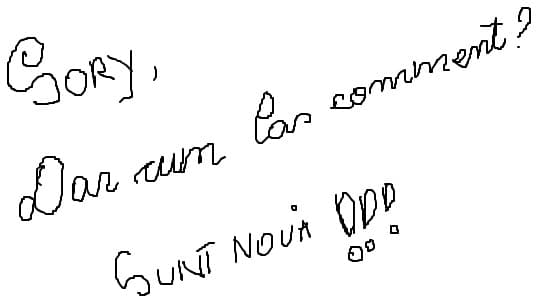 Sory,
Dar cum las comment?
SUNT NOUĂ !!!